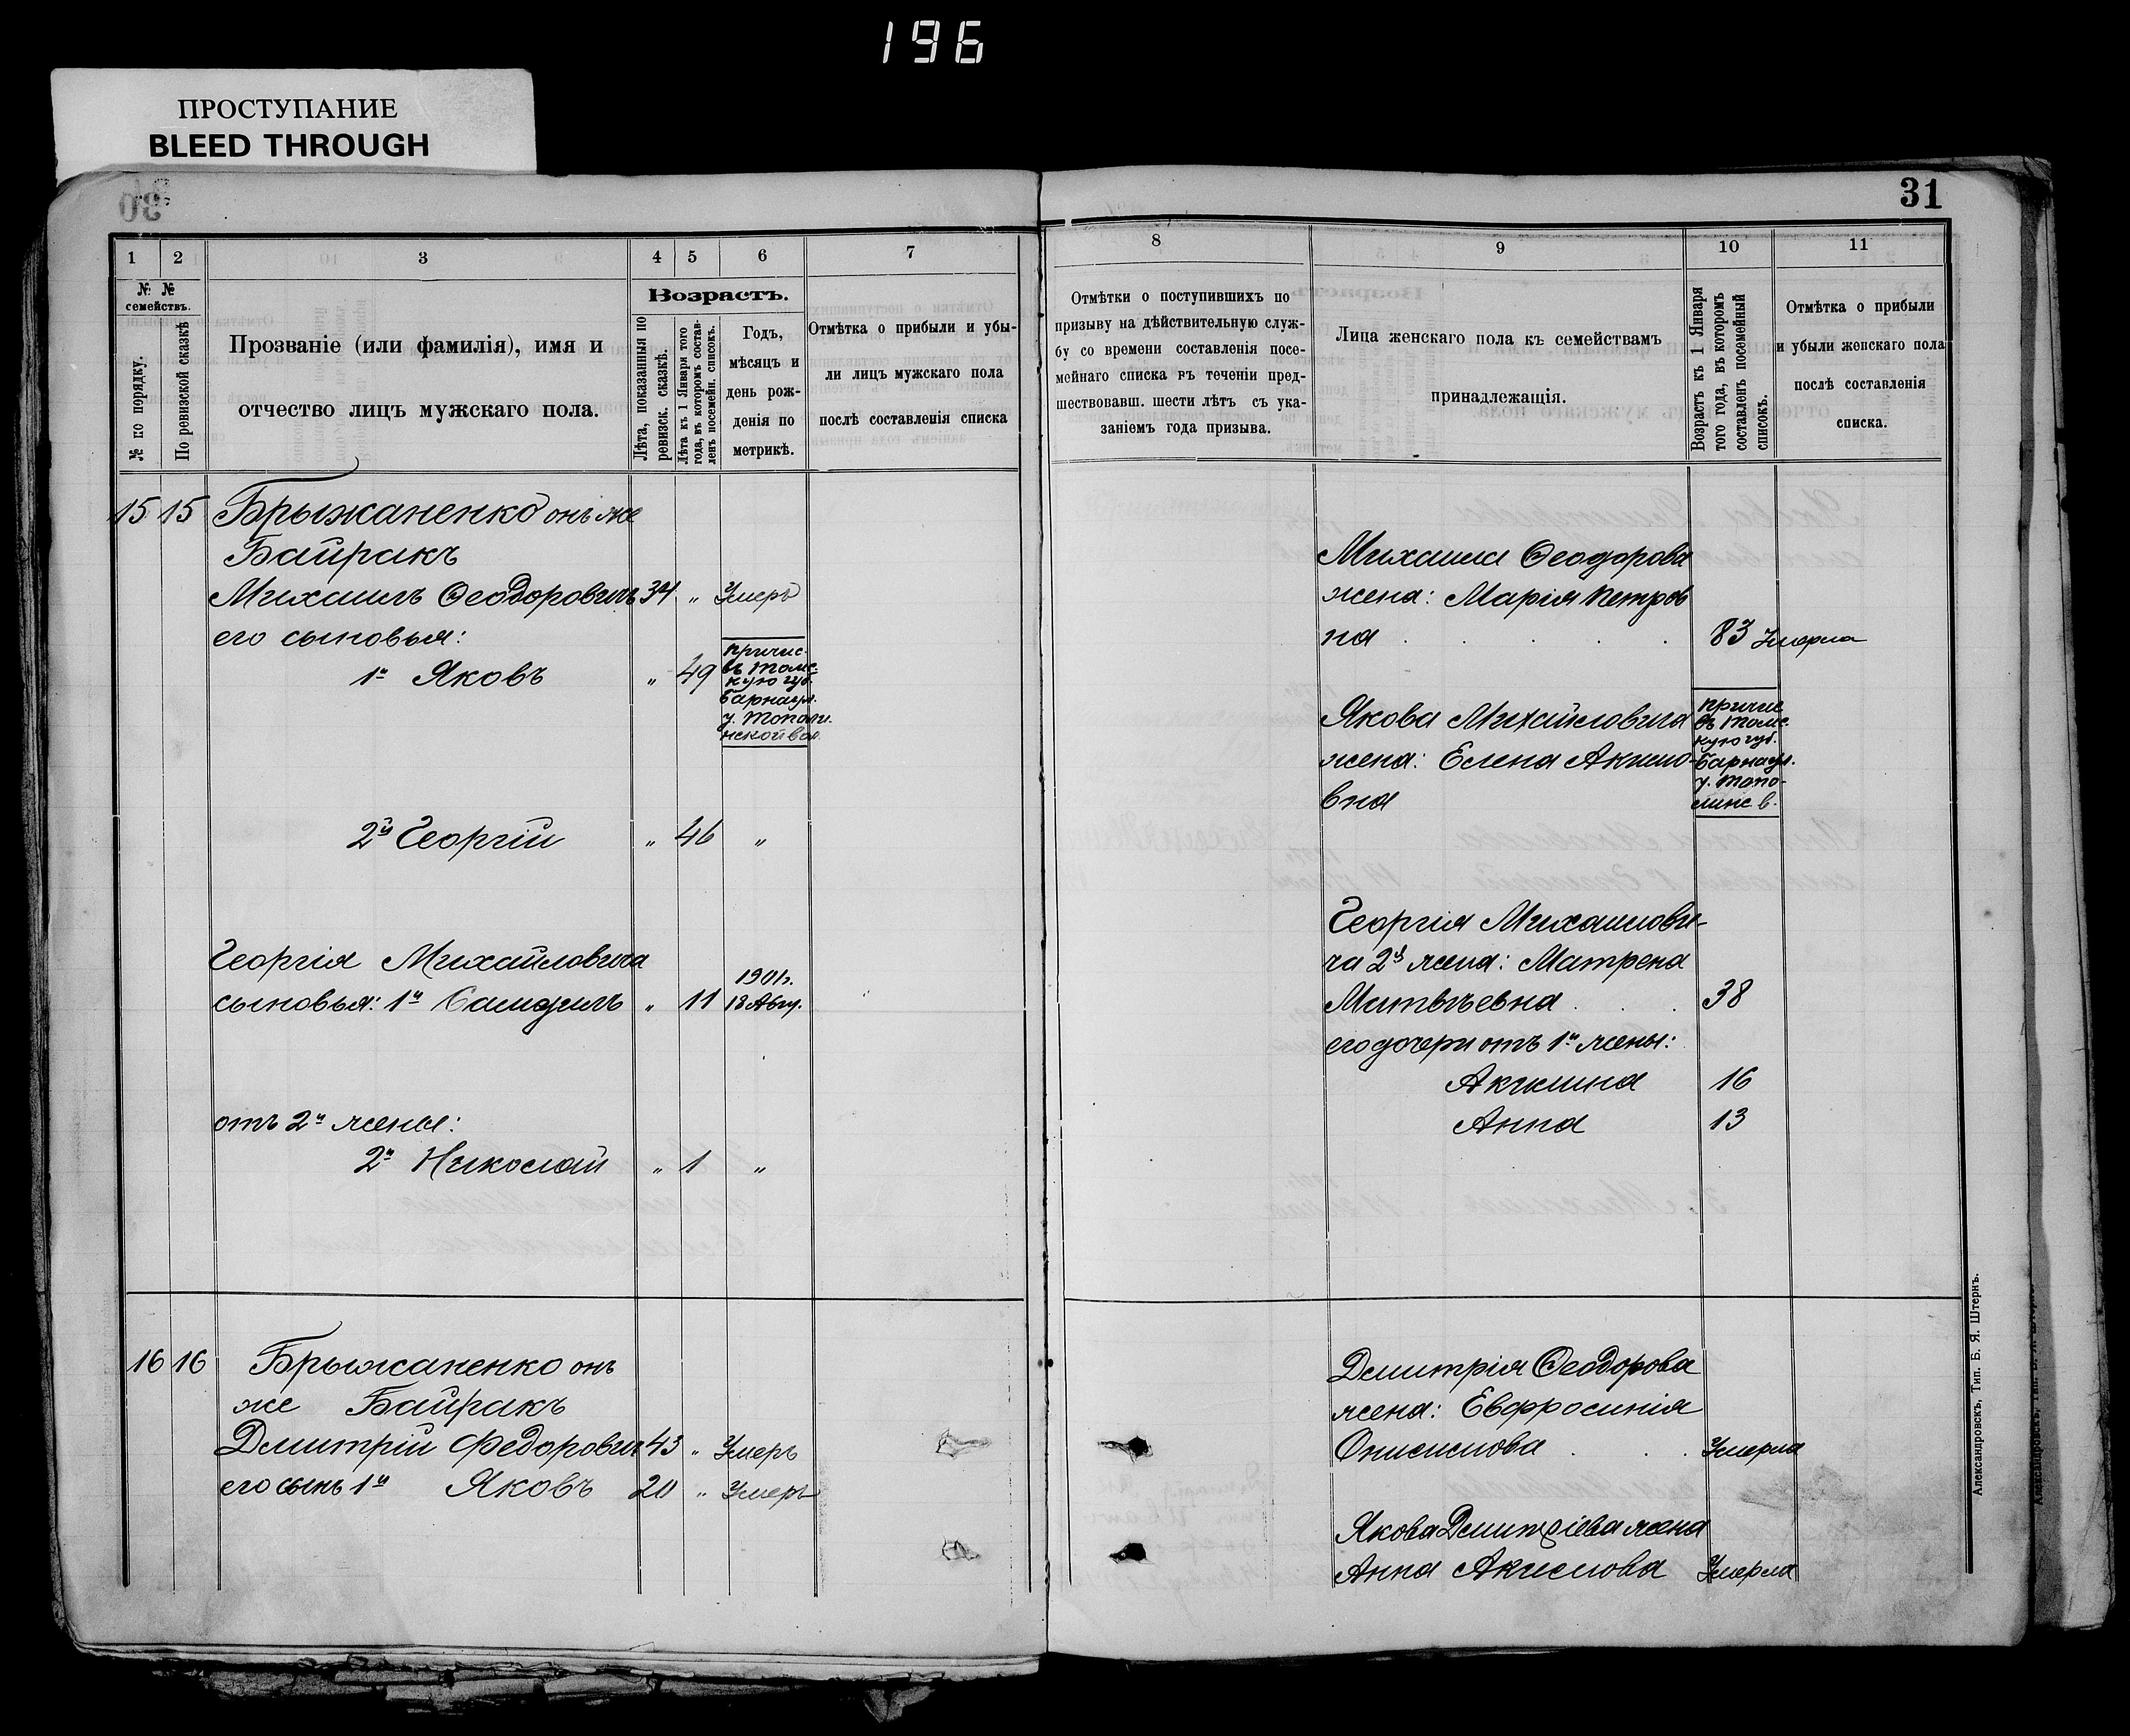 196
ПРОСТУПАНИЕ
BLEED THROUGH
30
31
1 2 3 4 5 6 7
№ № семействъ.
№ по порядку.
По ревизской сказкѣ
Прозваніе (или фамилія), имя и
отчество лицъ мужскаго пола.
Возрастъ.
Лѣта, показанныя по
ревизск. сказкѣ.
Лѣта къ 1 Января того
года, въ которомъ состав-
ленъ посемейн. списокъ.
Годъ,
мѣсяцъ и
день рож-
денія по
метрикѣ.
Отмѣтка о прибыли и убы-
ли лицъ мужскаго пола
послѣ составленія списка
15 15 Брыжаненко онъ же
Байракъ
Михаилъ Ѳеодоровичъ 34 „ Умеръ
его сыновья:
1й Яковъ „ 49
причис.
въ Томс.
кую губ.
Барнаул.
у. Тополи.
нской вол.
2й Георгій „ 46 „
Георгія Михайловича
сыновья: 1й Самуилъ „ 11
1901г.
18 Авгу.
отъ 2й жены:
2й Николай „ 1 „
16 16 Брыжаненко онъ
же Байракъ
Дмитрій Федорович 43 „ Умеръ
его сынъ 1й Яковъ 20 „ Умеръ
8 9 10 11
Отмѣтки о поступившихъ по
призыву на дѣйствительную служ-
бу со времени составленія посе-
мейнаго списка въ теченіи пред-
шествовавш. шести лѣтъ съ ука-
заніемъ года призыва.
Лица женскаго пола къ семействамъ
принадлежащія.
Возрастъ къ 1 Января
того года, въ которомъ
составленъ посемейный
списокъ.
Отмѣтка о прибыли
и убыли женскаго пола
послѣ составленія
списка.
Михаила Ѳеодорова
жена: Марія Петров
на 83 Умерла
Якова Михайловича
жена: Елена Акимо-
вна
причис.
въ Томс.
кую губ.
Барнаул.
у. Топо-
линс в.
Георгія Михаилови-
ча 2я жена: Матрена
Матвѣевна 38
его дочери отъ 1й жены:
Акилина 16
Анна 13
Дмитрія Ѳеодорова
жена: Евфросинія
Онисимова Умерла
Якова Дмитріева жена
Анна Акимова Умерла
Александровскъ, Тип. Б. Я. Штернъ.